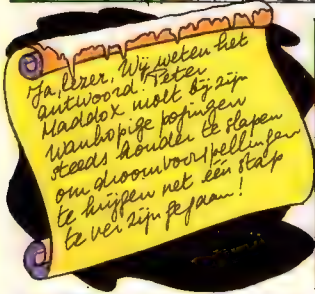 Ja, lezer. Wij weten het
antwoord! Peter
Maddox moet bij zijn
wanhopige pogingen
steeds harder te slapen
om droomvoorspellingen
te krijgen net één stap
te ver zijn gegaan!